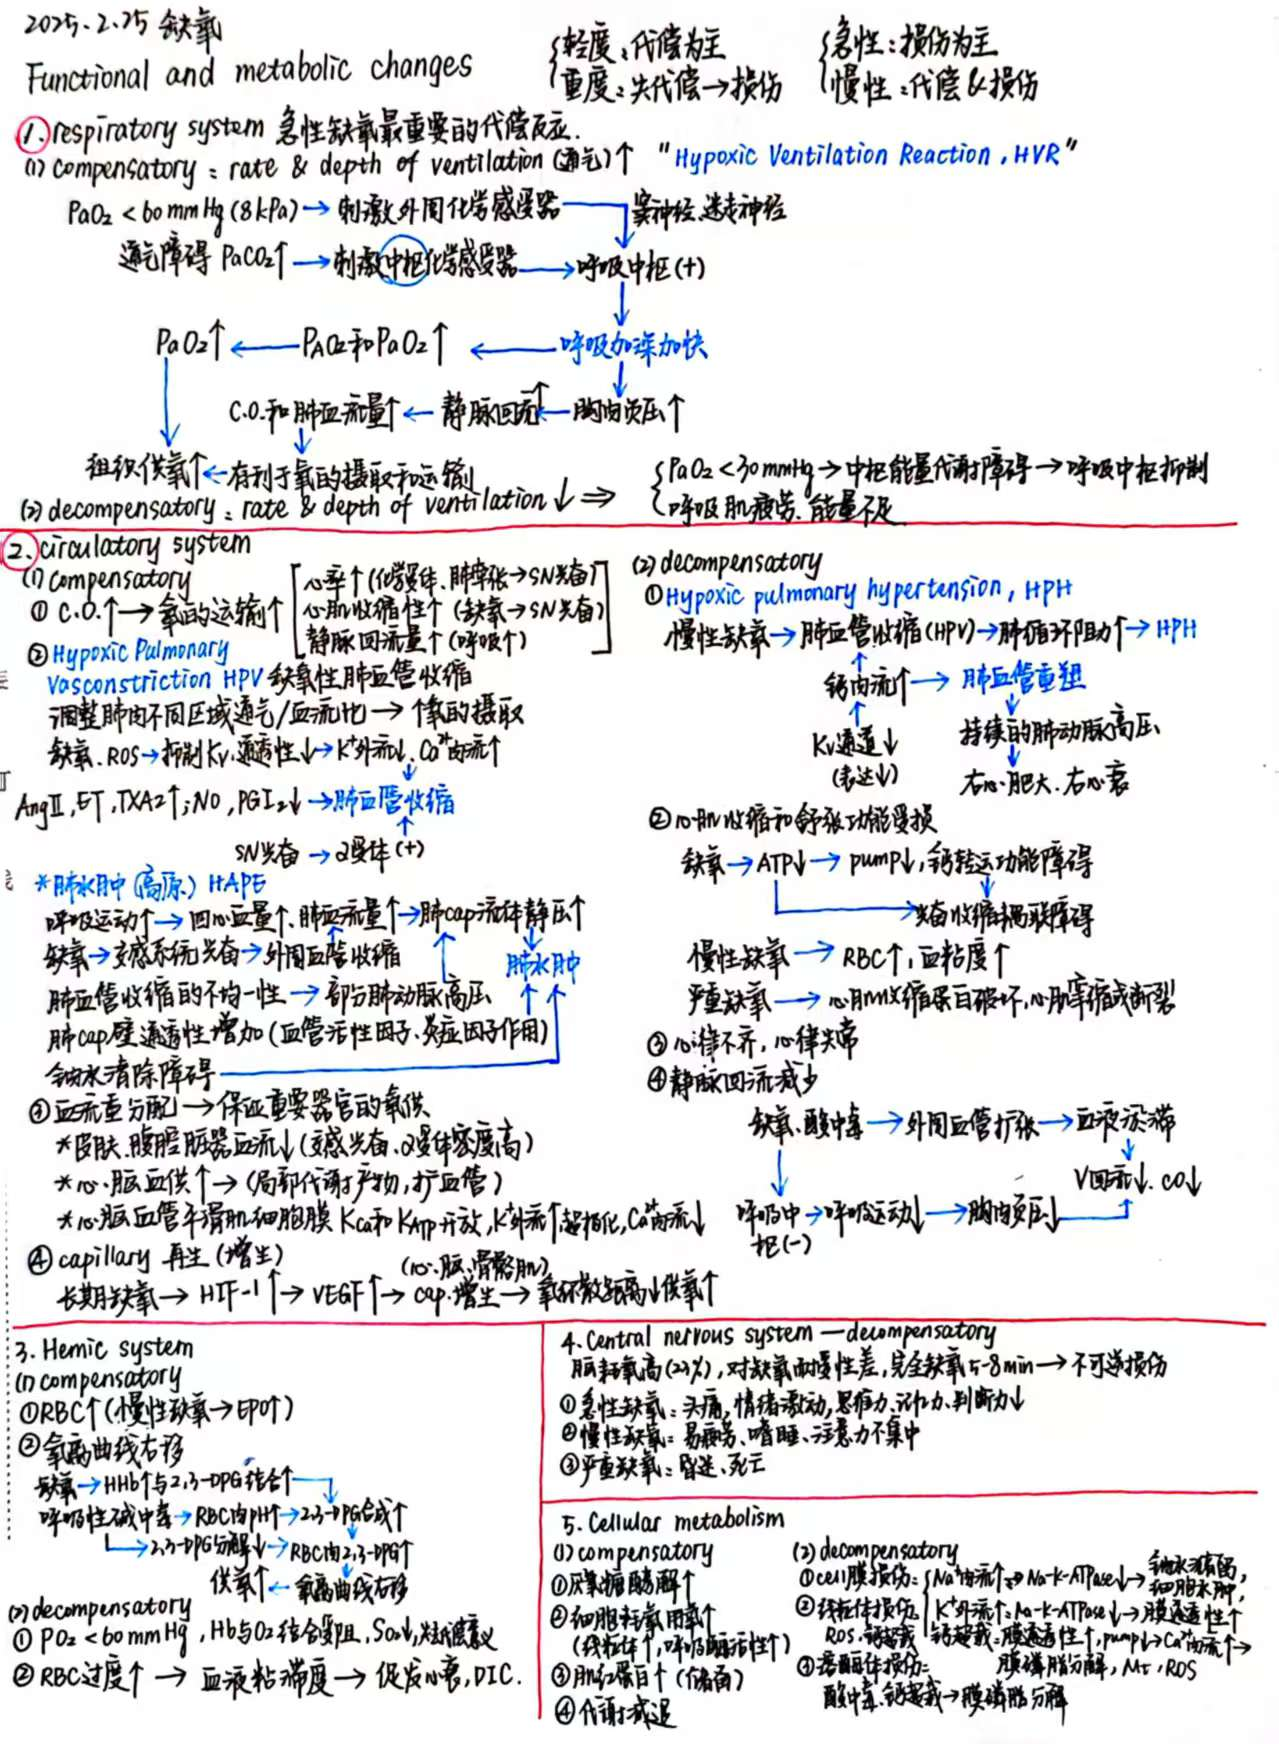 2025.2.25 缺氧
Functional and metabolic changes
轻度：代偿为主
重度：失代偿→损伤
急性：损伤为主
慢性：代偿&损伤
1. respiratory system 急性缺氧最重要的代偿反应.
(1) compensatory: rate & depth of ventilation (通气)↑ "Hypoxic Ventilation Reaction, HVR"
PaO2 < 60mmHg (8kPa) → 刺激外周化学感受器 → 窦神经、迷走神经
通气障碍 PaCO2↑ → 刺激中枢化学感受器 → 呼吸中枢(+)
PaO2↑ ← PAO2和PaO2↑ ← 呼吸加深加快
C.O.和肺血流量↑ ← 静脉回流↑ ← 胸内负压↑
组织供氧↑ ← 有利于氧的摄取和运输
(2) decompensatory: rate & depth of ventilation ↓ ⇒
PaO2 < 30mmHg → 中枢能量代谢障碍 → 呼吸中枢抑制
呼吸肌疲劳、能量不足
2. circulatory system
(1) compensatory
① C.O.↑ → 氧的运输↑
心率↑ (化学受体、肺牵张→SN兴奋)
心肌收缩性↑ (缺氧→SN兴奋)
静脉回流量↑ (呼吸↑)
② Hypoxic Pulmonary
Vasconstriction HPV 缺氧性肺血管收缩
调整肺内不同区域通气/血流比 → ↑氧的摄取
缺氧、ROS → 抑制Kv, 通透性↓ → K⁺外流↓、Ca²⁺内流↑
AngⅡ, ET, TXA2↑; NO, PGI2↓ → 肺血管收缩
SN兴奋 → α受体(+)
*肺水肿 (高原) HAPE
呼吸运动↑ → 回心血量↑、肺血流量↑ → 肺cap流体静压↑
缺氧 → 交感系统兴奋 → 外周血管收缩
肺水肿
肺血管收缩的不均一性 → 部分肺动脉高压
肺cap壁通透性增加 (血管活性因子、炎症因子作用)
钠水清除障碍
③ 血流重分配 → 保证重要器官的氧供
*皮肤、腹腔脏器血流↓ (交感兴奋、α受体密度高)
*心、脑血供↑ → (局部代谢产物, 扩血管)
*心、脑血管平滑肌细胞膜 KCa和KATP开放, K⁺外流↑, 超极化, Ca²⁺内流↓
④ capillary 再生 (增生)
(心、脑、骨骼肌)
长期缺氧 → HIF-1↑ → VEGF↑ → cap.增生 → 氧弥散距离↓ 供氧↑
(2) decompensatory
① Hypoxic pulmonary hypertension, HPH
慢性缺氧 → 肺血管收缩(HPV) → 肺循环阻力↑ → HPH
钙内流↑ → 肺血管重塑
Kv通道↓
(表达↓)
持续的肺动脉高压
右心肥大、右心衰
② 心肌收缩和舒张功能受损
缺氧 → ATP↓ → pump↓, 钙转运功能障碍
兴奋收缩耦联障碍
慢性缺氧 → RBC↑, 血粘度↑
严重缺氧 → 心肌收缩蛋白破坏, 心肌挛缩或断裂
③ 心律不齐, 心律失常
④ 静脉回流减少
缺氧、酸中毒 → 外周血管扩张 → 血液淤滞
V回流↓、CO↓
呼吸中 → 呼吸运动↓ → 胸内负压↓
枢(-)
3. Hemic system
(1) compensatory
① RBC↑ (慢性缺氧→EPO↑)
② 氧离曲线右移
缺氧 → HHb↑与2,3-DPG结合↑
呼吸性碱中毒 → RBC内pH↑ → 2,3-DPG合成↑
2,3-DPG分解↓ → RBC内2,3-DPG↑
供氧↑ ← 氧离曲线右移
(2) decompensatory
① PO2 < 60mmHg, Hb与O2结合受阻, SO2↓,
② RBC过度↑ → 血液粘滞度 → 促发心衰, DIC.
4. Central nervous system — decompensatory
脑耗氧高(23%), 对缺氧耐受性差, 完全缺氧5-8min → 不可逆损伤
① 急性缺氧: 头痛, 情绪激动, 思维力、记忆力、判断力↓
② 慢性缺氧: 易疲劳、嗜睡、注意力不集中
③ 严重缺氧: 昏迷、死亡
5. Cellular metabolism
(1) compensatory
① 厌氧糖酵解↑
② 细胞耗氧用氧↑
(线粒体↑, 呼吸酶活性↑)
③ 肌红蛋白↑ (储备)
④ 代谢减退
(2) decompensatory
① cell膜损伤: Na⁺内流↑ → Na-K-ATPase↓ → 钠水潴留, 细胞水肿,
K⁺外流↑: Na-K-ATPase↓ → 膜通透性↑
钙超载: 膜通透性↑, pump↓ → Ca²⁺内流↑ →
膜磷脂分解, Mt, ROS
② 线粒体损伤:
ROS、钙超载
③ 溶酶体损伤:
酸中毒、钙超载 → 膜磷脂分解